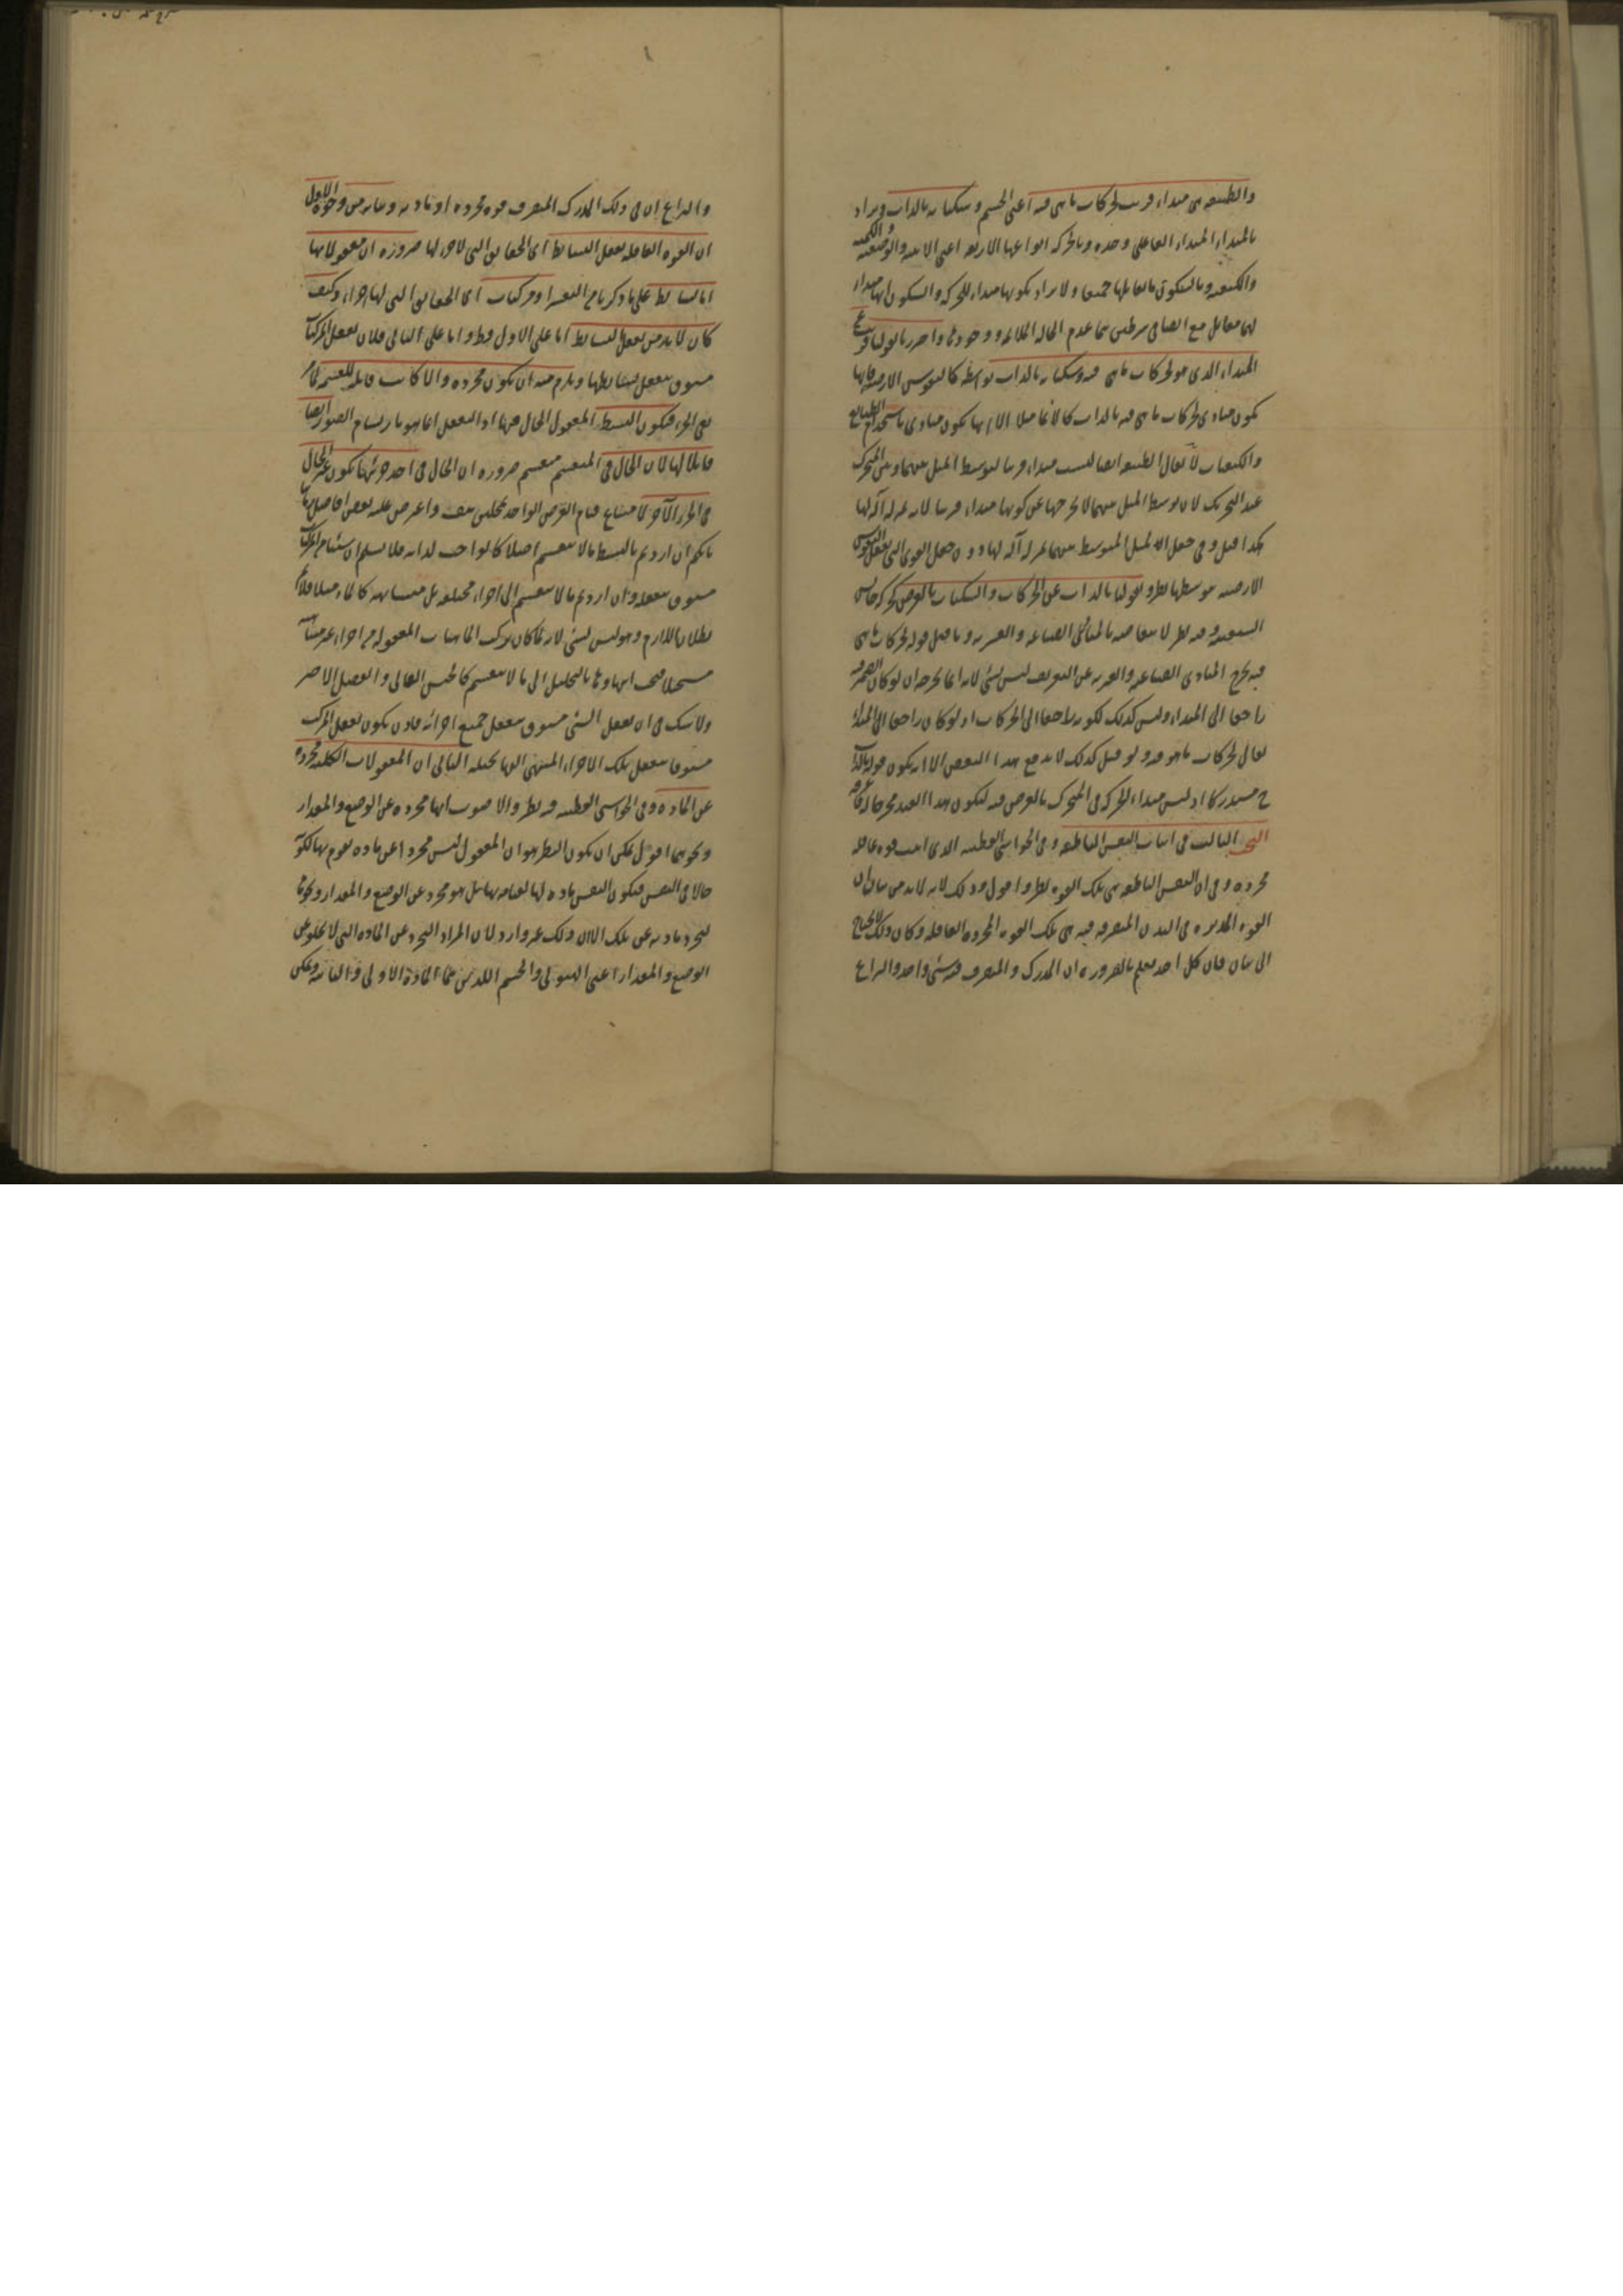 والطبيعة هي مبداء قريب لحركات ما هي فيه اعني الجسم وسكناته بالذات ويراد
بالمبداء المبداء الفاعلي وحده وبالحركة انواعها الاربعة اعني الاينية والوضعية والكمية
والكيفية وبالسكون ما يقابلها جميعا ولا يراد بكونها مبداء للحركة والسكون انها مبداء
لهما معا بل مع انضياف شرطين هما عدم الحالة الملائمة ووجودها واحترز بالقول قريب عن
المبداء الذي هو لحركات ما هي فيه وسكناته بالذات بواسطة كالنفوس الارضية فانها
تكون مبادي لحركات ما هي فيه بالذات كالانماء مثلا الا انها تكون مبادي باستخدام الطبايع
والكيفيات لا يقال الطبيعة ايضا ليست مبداء قريبا لتوسط الميل بينها وبين المتحرك
عند التحريك لان توسط الميل بينهما لا يخرجها عن كونها مبداء قريبا لانه بمنزلة آلة لها
هكذا قيل وفي جعل الميل المتوسط بينهما بمنزلة آلة لها دون جعل القوى التي تفعل النفوس
الارضية بتوسطها نظر وبقولنا بالذات عن الحركات والسكنات بالعرض كحركة جالس
السفينة وفيه نظر لانتقاضه بالمبادي الصناعية والقسرية وما قيل قوله لحركات ما هي
فيه يخرج المبادي الصناعية والقسرية عن التعريف ليس بشئ لانه انما يخرجه ان لو كان الضمير فيه
راجعا الى المبداء وليس كذلك لكونه راجعا الى الحركات اذ لو كان راجعا الى المبداء
لقال لحركات ما هو فيه ولو قيل كذلك لاندفع هذا النقض الا انه يكون قوله بالذات
ح مستدركا اذ ليس مبداء للحركة في المتحرك بالعرض فيه ليكون هذا القيد مخرجا له
البحث الثالث في اثبات النفس الناطقة وفي الحواشي القطبية الذي اثبت قوة عاقلة
مجردة وفي ان النفس الناطقة هي تلك القوة نظر واقول وذلك لانه لا بد من بيان ان
القوة المدبرة في البدن المتصرفة فيه هي تلك القوة المجردة العاقلة وكان ذلك لا يحتاج
الى بيان فان كل احد يعلم بالضرورة ان المدرك والمتصرف فيه شئ واحد والنزاع
والنزاع ان في ذلك المدرك المتصرف قوة مجردة او مادية وبيانه من وجوه الاول
ان القوة العاقلة تعقل البسايط اى الحقايق التي لا جزء لها ضرورة ان معقولاتها
اما بسايط على ما ذكرنا من التفسير او مركبات اى الحقايق التي لها اجزاء وكيف
كان لا بد من تعقل البسايط اما على الاول فظ واما على الثاني فلان تعقل المركبات
مسبوق بتعقل بسايطها ويلزم منه ان تكون مجردة والا كانت قابلة للقسمة لما مر
نفي الجزء فيكون البسيط المعقول الحال فيها اذ التعقل انما هو بارتسام الصور ايضا
قابلا لها لان الحال في المنقسم منقسم ضرورة ان الحال في احد جزئيها يكون غير الحال
في الجزء الآخر لامتناع قيام العرض الواحد بمحلين هف واعترض عليه بعض افاضل زماننا
بانكم ان اردتم بالبسيط ما لا ينقسم اصلا كالواجب لذاته فلا نسلم ان سائر المركبات
مسبوق بتعقله وان اردتم ما لا ينقسم الى اجزاء مختلفة بل متشابهة كالماء مثلا فلا نم
بطلان اللازم وهو ليس بشئ لانه لما كان تركب الماهيات المعقولة من اجزاء غير متناهية
مستحيلا فيجب انتهاؤها بالتحليل الى ما لا ينقسم كالجنس العالي والفصل الاخير
ولا شك في ان تعقل الشئ مسبوق بتعقل جميع اجزائه فاذن يكون تعقل المركب
مسبوقا بتعقل تلك الاجزاء المنتهى اليها بتحليله الثاني ان المعقولات الكلية مجردة
عن المادة وفي الحواشي القطبية فيه نظر والاصوب انها مجردة عن الوضع والمقدار
ونحوهما اقول يمكن ان يكون النظر هو ان المعقول ليس مجردا عن مادة يقوم بها لكونه
حالا في النفس فيكون النفس مادة لها لقيامه بها بل هو مجرد عن الوضع والمقدار ونحوها
لتجرد مادته عن تلك الا ان ذلك غير وارد لان المراد التجرد عن المادة التي لا تخلو عن
الوضع والمقدار اعني الهيولى والجسم اللذين هما المادة الاولى والثانية ويمكن